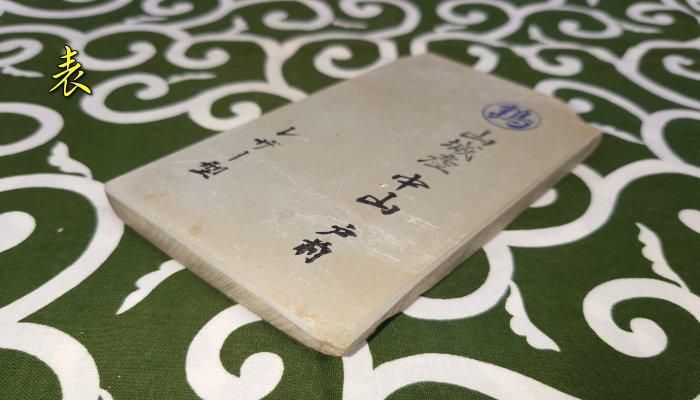 表
山城産 中山 戸前
レザー型